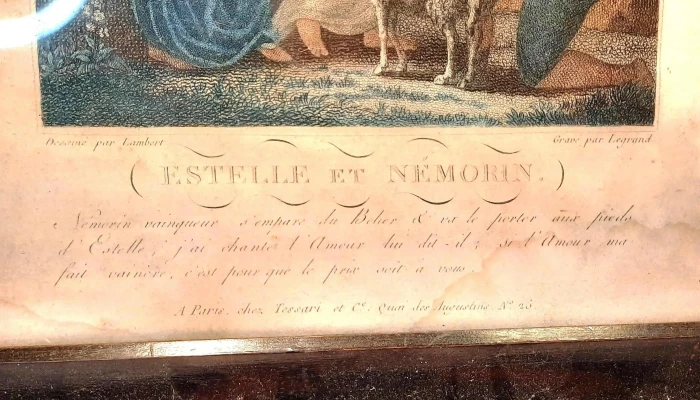 Dessiné par Lambert
Gravé par Legrand
(ESTELLE ET NÉMORIN.)
Némorin vainqueur s'empare du Belier & va le porter aux pieds
d'Estelle; j'ai chanté l'Amour lui dit-il; si l'Amour ma
fait vaincre, c'est pour que le prix soit a vous.
A Paris, chez Tessari et Cº. Quai des Augustins, Nº 25.